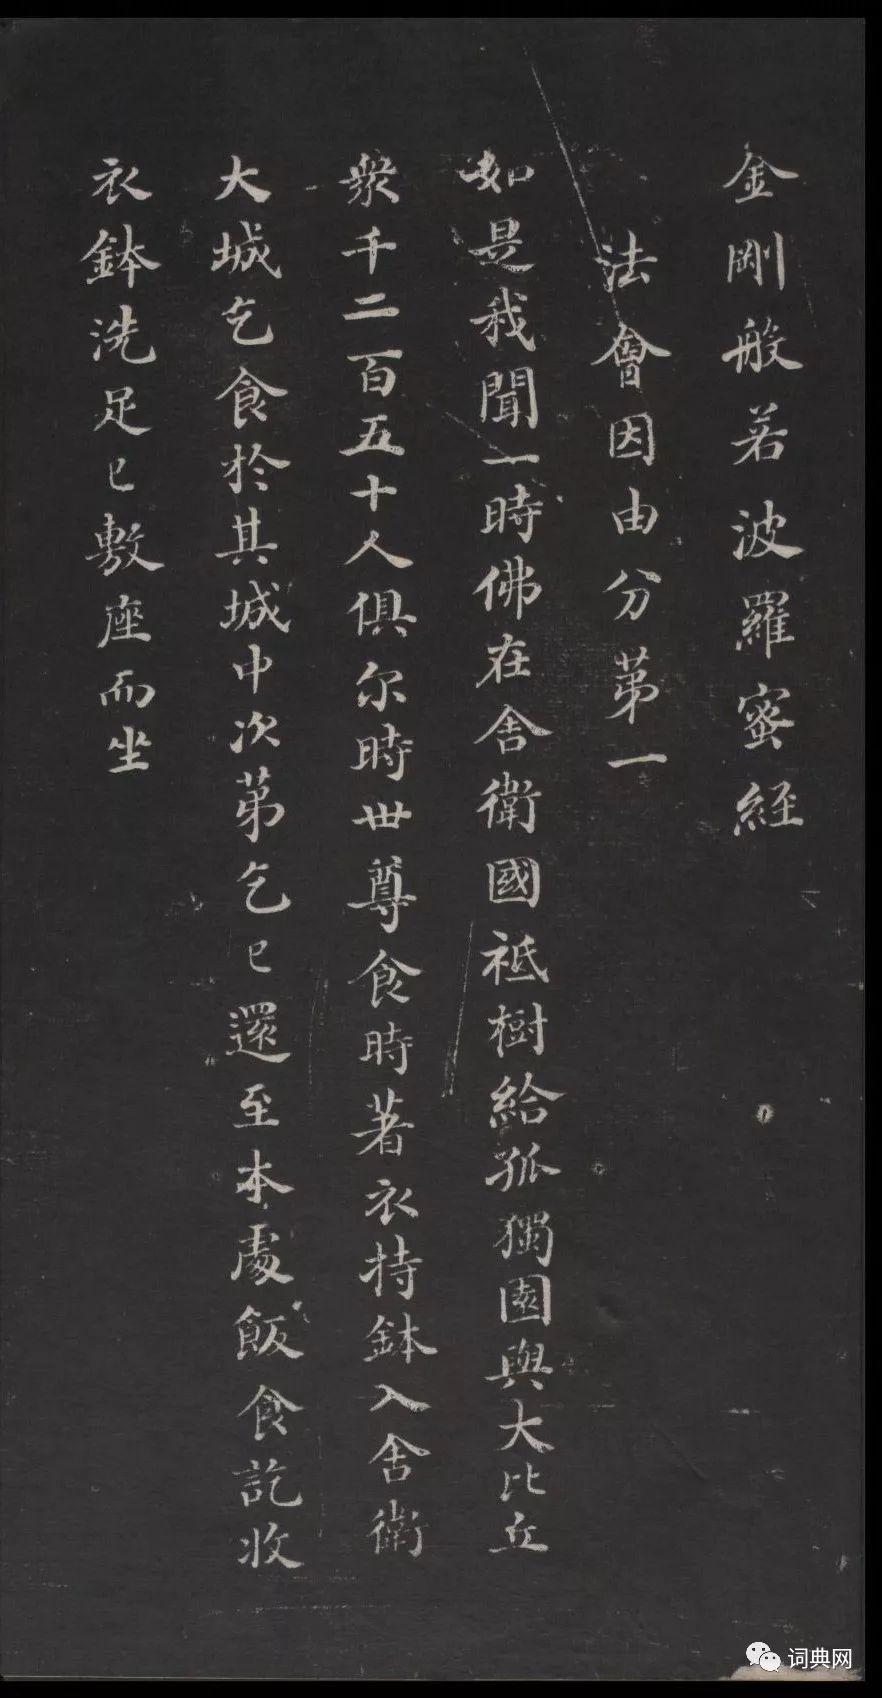 金剛般若波羅蜜經
法會因由分第一
如是我聞一時佛在舍衛國祗樹給孤獨園與大比丘
衆千二百五十人俱尔時世尊食時著衣持鉢入舍衛
大城乞食於其城中次第乞已還至本處飯食訖收
衣鉢洗足已敷座而坐
词典网